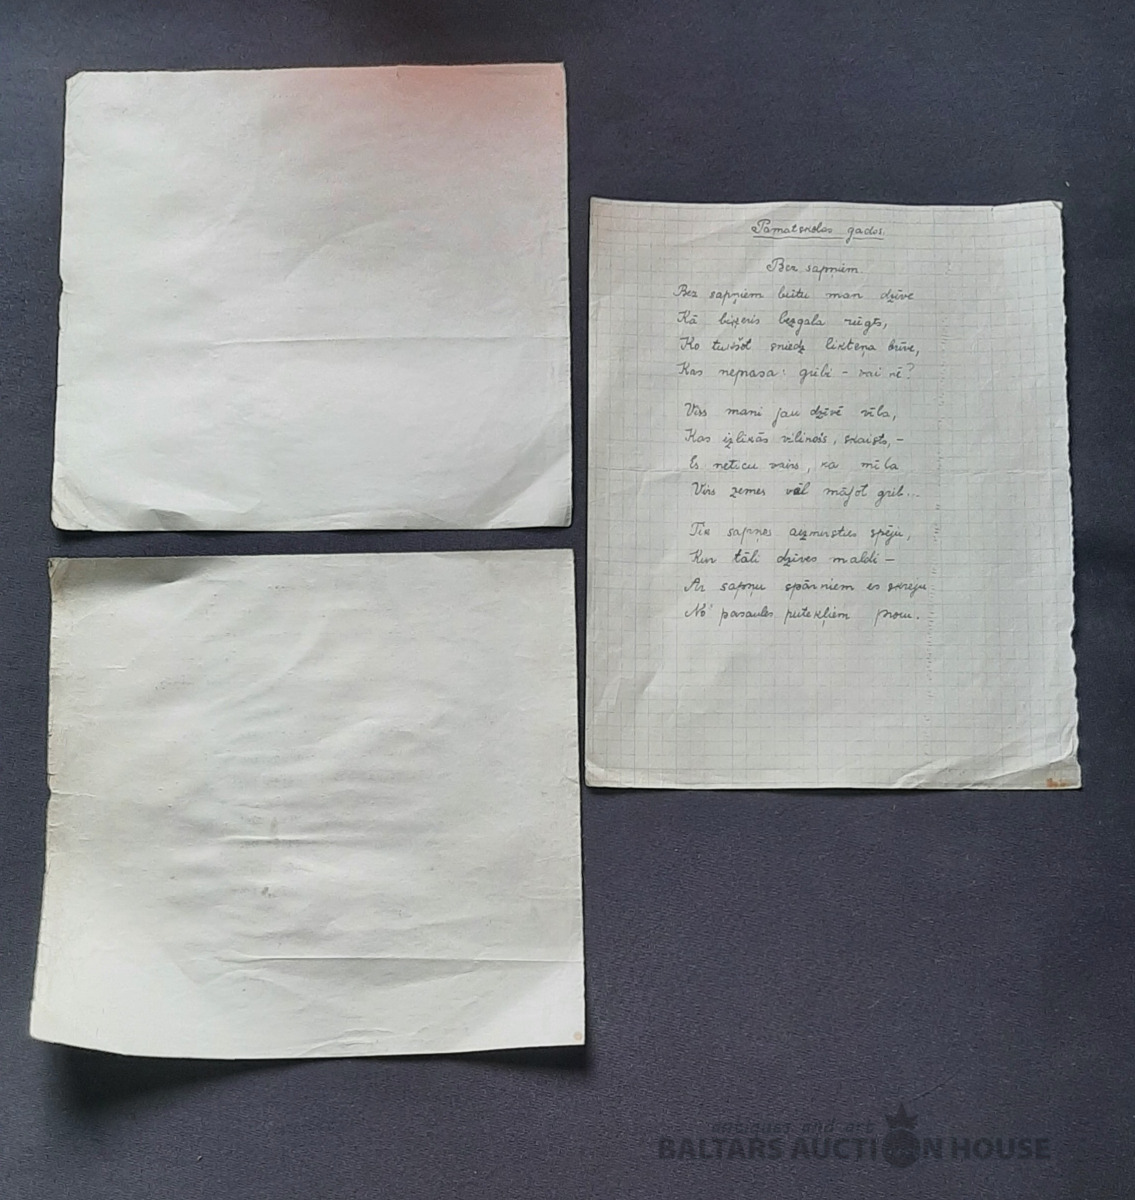 Pamatskolas gados.
Bez sapņiem.
Bez sapņiem būtu man dzīve
Kā biķeris bezgala rūgts,
Ko tukšot sniedz likteņa brīve,
Kas neprasa: gribi – vai nē?
Viss mani jau dzīvē vīla,
Kas izlikās vilinošs, skaists, –
Es neticu vairs, ka mīla
Virs zemes vēl mājot grib...
Tik sapņos aizmirsties spēju,
Kur tāli dzīves maldi –
Ar sapņu spārniem es skreju
No pasaules putekļiem prom.
antiques and art
BALTARS AUCTION HOUSE